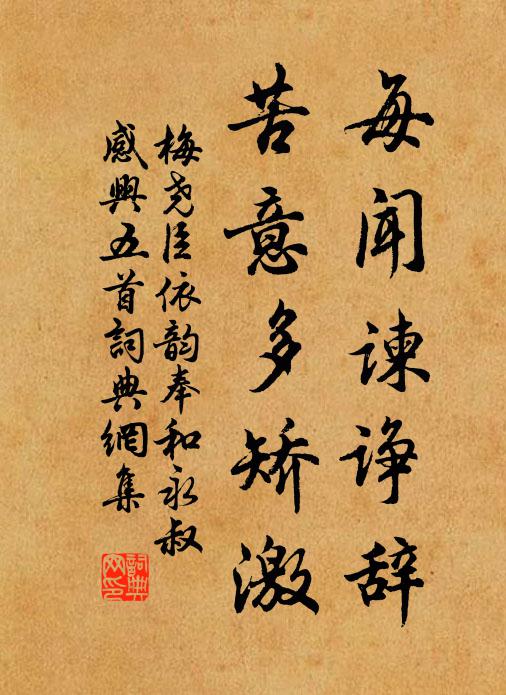 每闻谏诤辞
苦意多矫激
梅尧臣依韵奉和永叔
感興五首詞典網集
詞典
网印